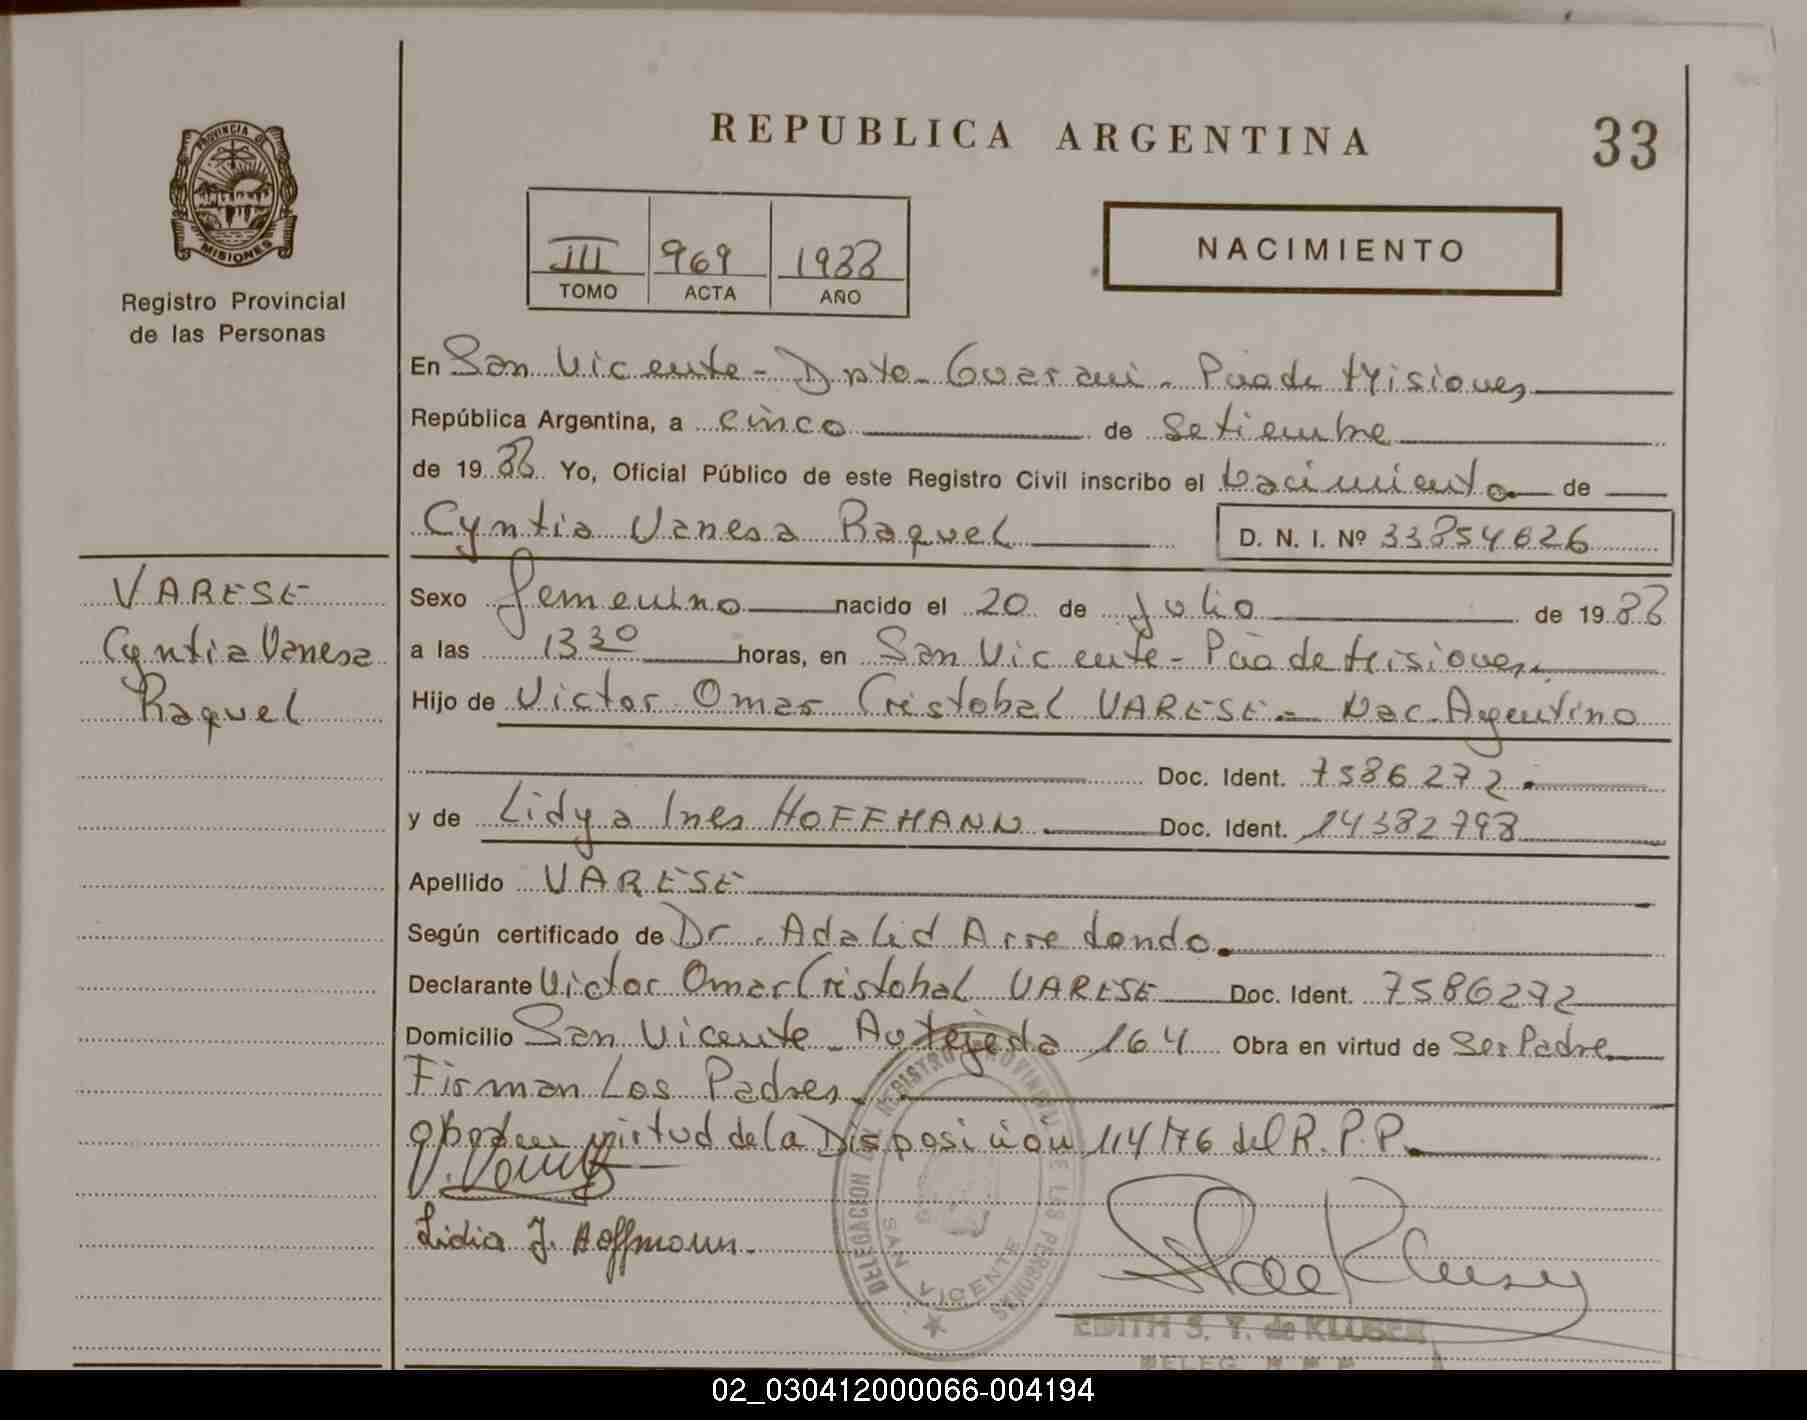 REPUBLICA ARGENTINA
33
PROVINCIA DE
MISIONES
Registro Provincial
de las Personas
III 969 1988
TOMO ACTA AÑO
NACIMIENTO
En San Vicente - Dpto. Guarani - Pcia de Misiones
República Argentina, a cinco de Setiembre
de 1988 Yo, Oficial Público de este Registro Civil inscribo el Nacimiento de
Cyntia Vanesa Raquel D. N. I. Nº 33854626
VARESE
Cyntia Vanesa
Raquel
Sexo femenino nacido el 20 de Julio de 1988
a las 13 30 horas, en San Vicente - Pcia de Misiones
Hijo de Victor Omar Cristobal VARESE - Nac. Argentino
Doc. Ident. 7586272
y de Lidya Ines HOFFMANN Doc. Ident. 14382798
Apellido VARESE
Según certificado de Dr. Adalid Arredondo.
Declarante Victor Omar Cristobal VARESE Doc. Ident. 7586272
Domicilio San Vicente - 164 Obra en virtud de Ser Padre
Firman Los Padres.
virtud de la Disposicion 114/76 del R.P.P.
Lidia J. Hoffmann.
DELEGACION DEL REGISTRO PROVINCIAL DE LAS PERSONAS
SAN VICENTE
EDITH S. T. de KLUSER
DELEG.
02_030412000066-004194